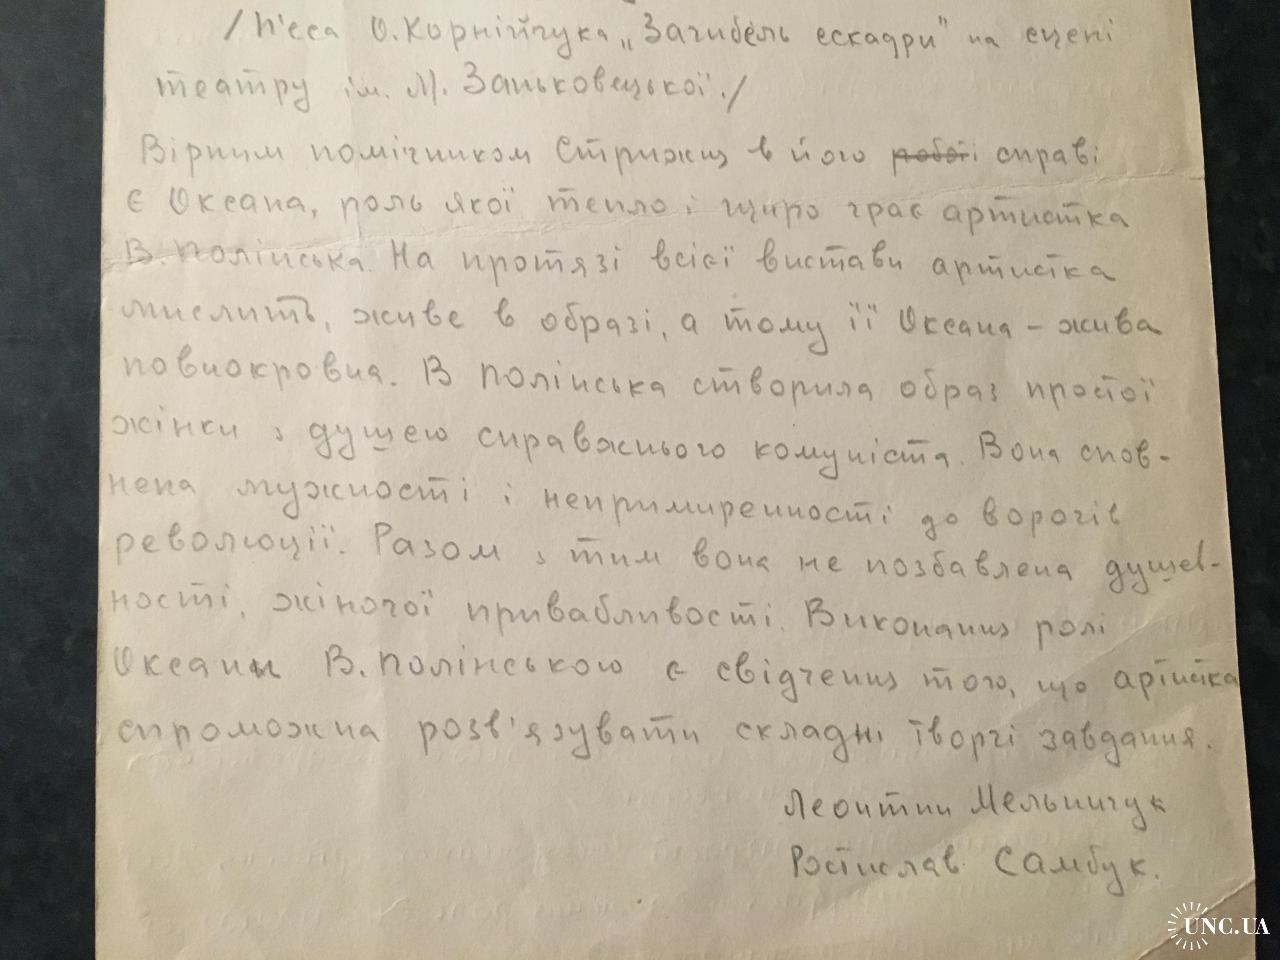 /П'єса О. Корнійчука „Загибель ескадри" на сцені
театру ім. М. Заньковецької./
Вірним помічником Стрижня в його роботі справі
є Оксана, роль якої тепло і щиро грає артистка
В. Полінська. На протязі всієї вистави артистка
мислить, живе в образі, а тому її Оксана – жива
повнокровна. В Полінська створила образ простої
жінки з душею справжнього комуніста. Вона спов-
нена мужності і непримиренності до ворогів
революції. Разом з тим вона не позбавлена душев-
ності, жіночої привабливості. Виконання ролі
Оксани В. Полінською є свідченням того, що артистка
спроможна розв'язувати складні творчі завдання.
Леонтин Мельничук
Ростислав Самбук.
UNC.UA